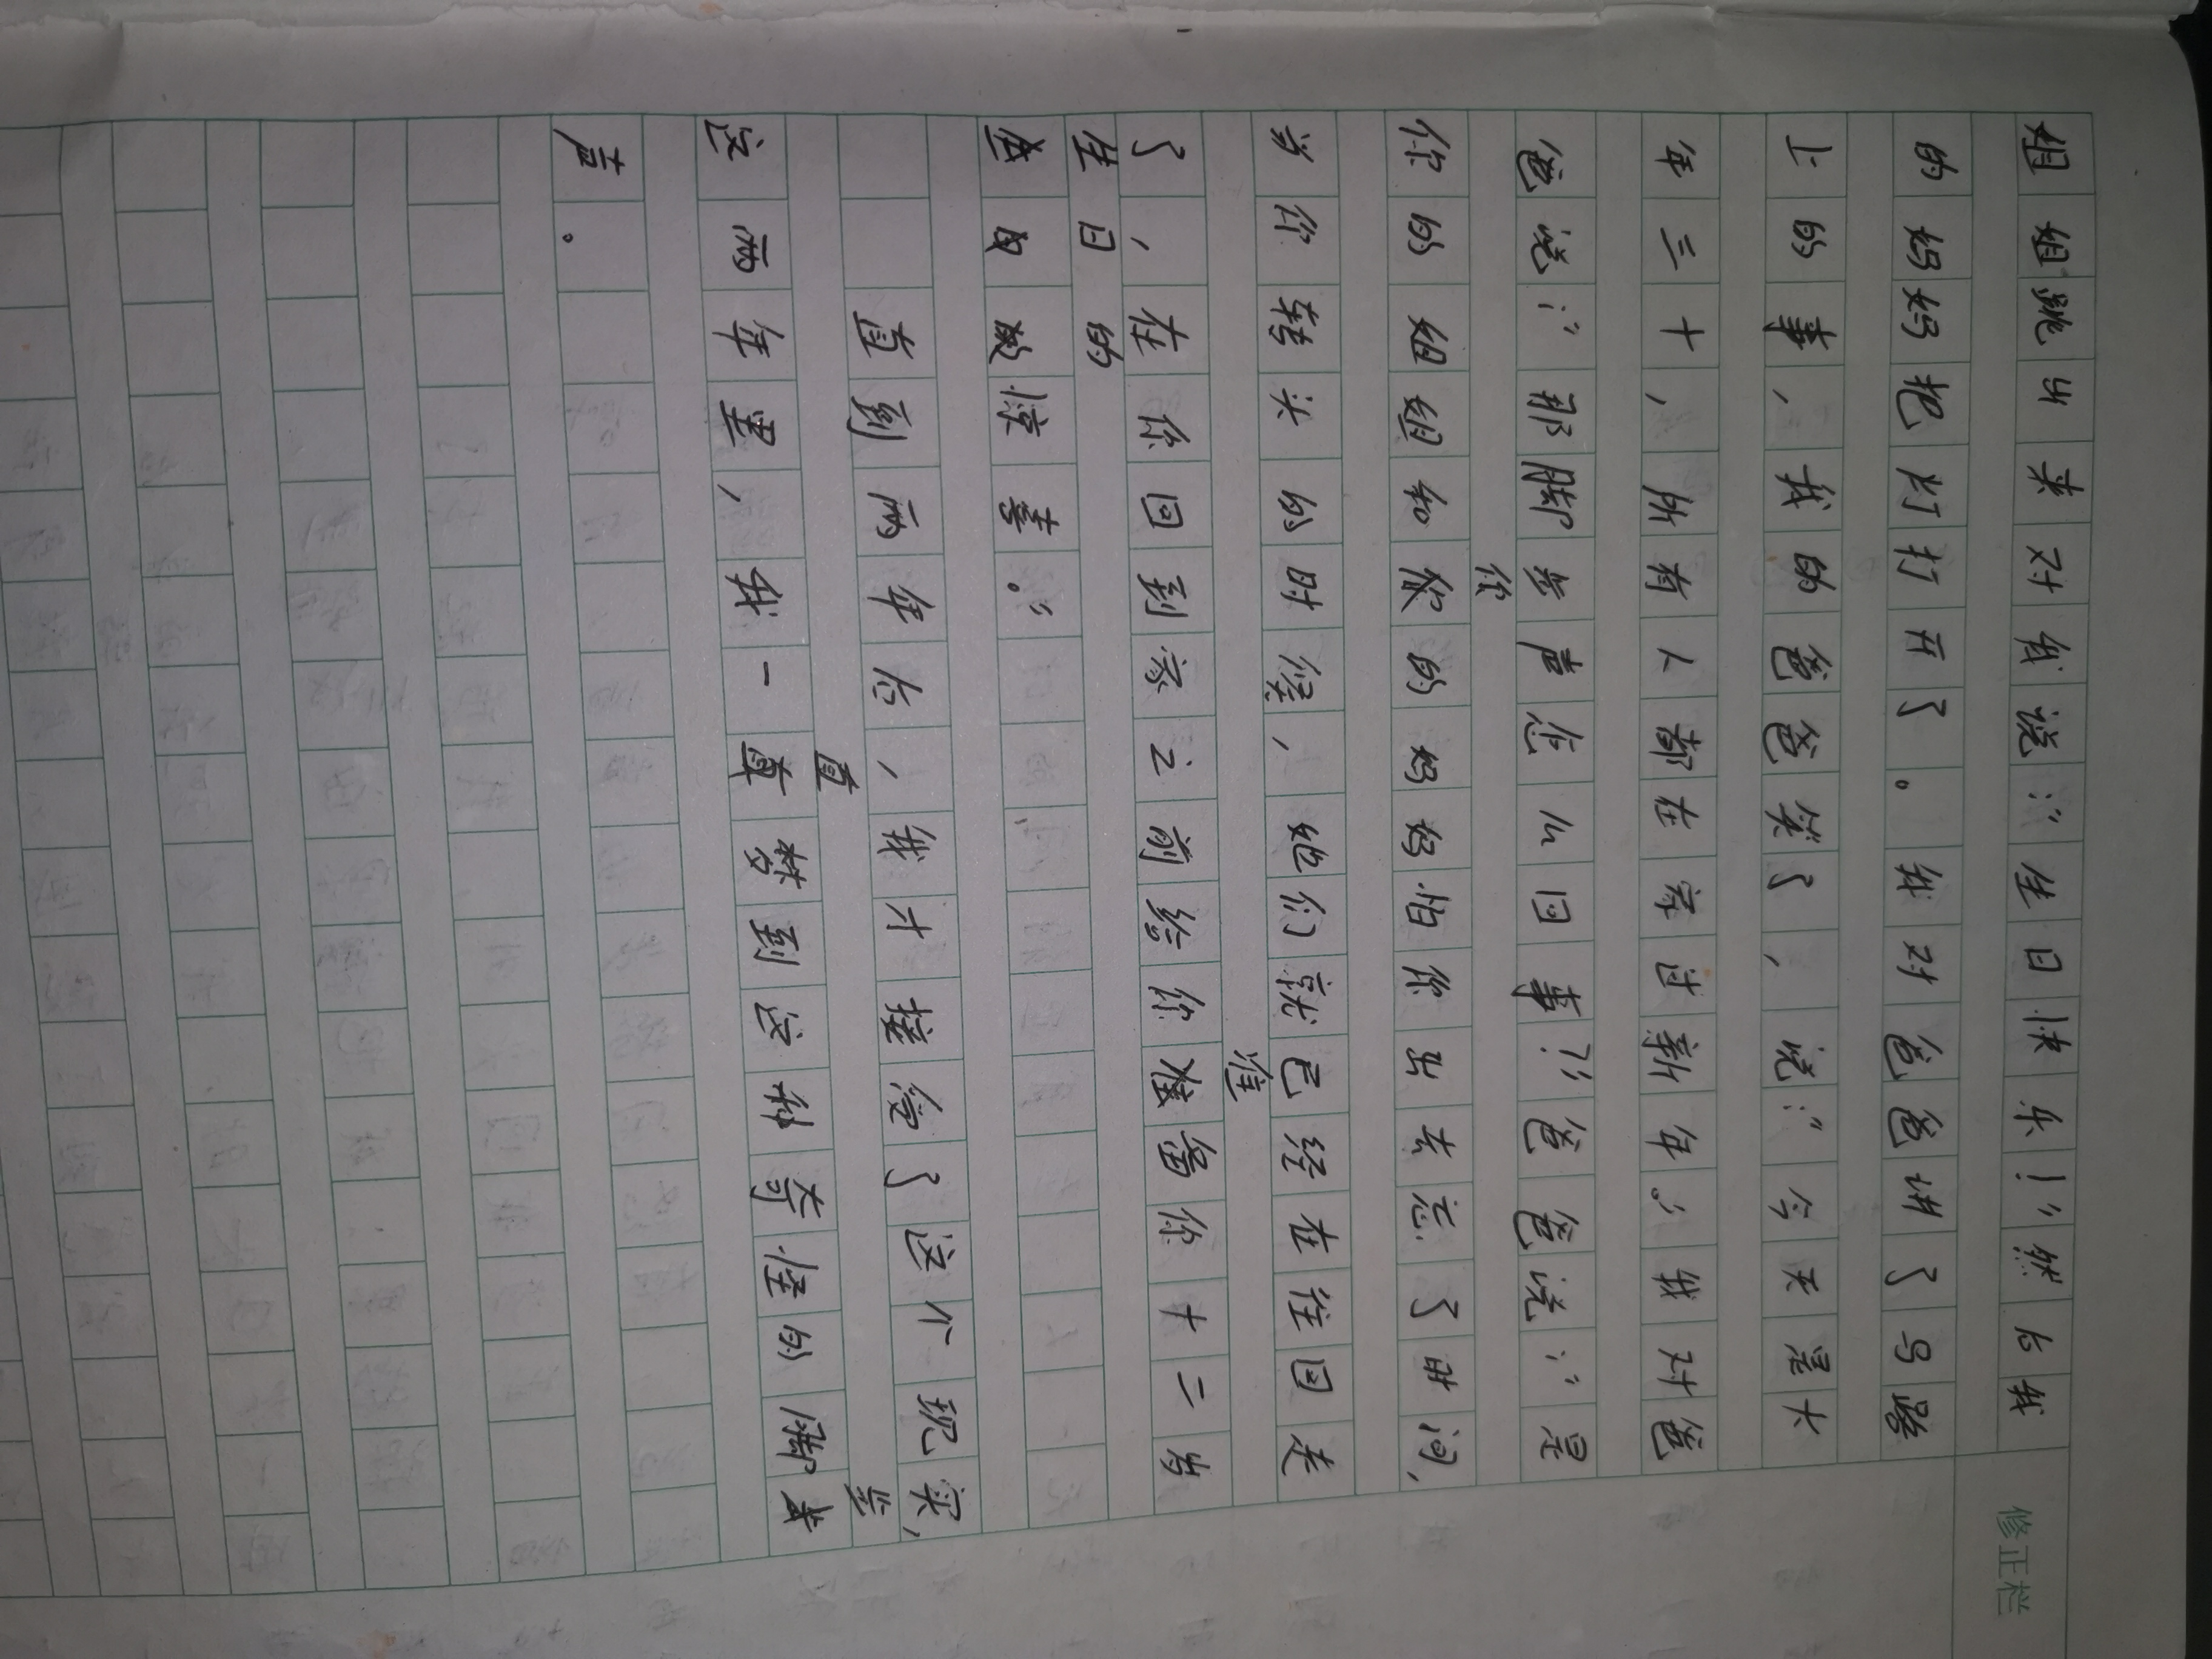 修正栏
姐姐跳出来对我说：“生日快乐！”然后我
的妈妈把灯打开了。我对爸爸讲了马路
上的事，我的爸爸笑了，说：“今天是大
年三十，所有人都在家过新年。”我对爸
爸说：“那脚步声怎么回事？”爸爸说：“是
你的姐姐和你的妈妈怕你出去忘了时间，
当你转头的时候，她们就已经在往回走
了，在你回到家之前给你准备你十二岁
生日的惊喜。”
直到两年后，我才接受了这个现实，
这两年里，我一直梦到这种奇怪的脚步
声。